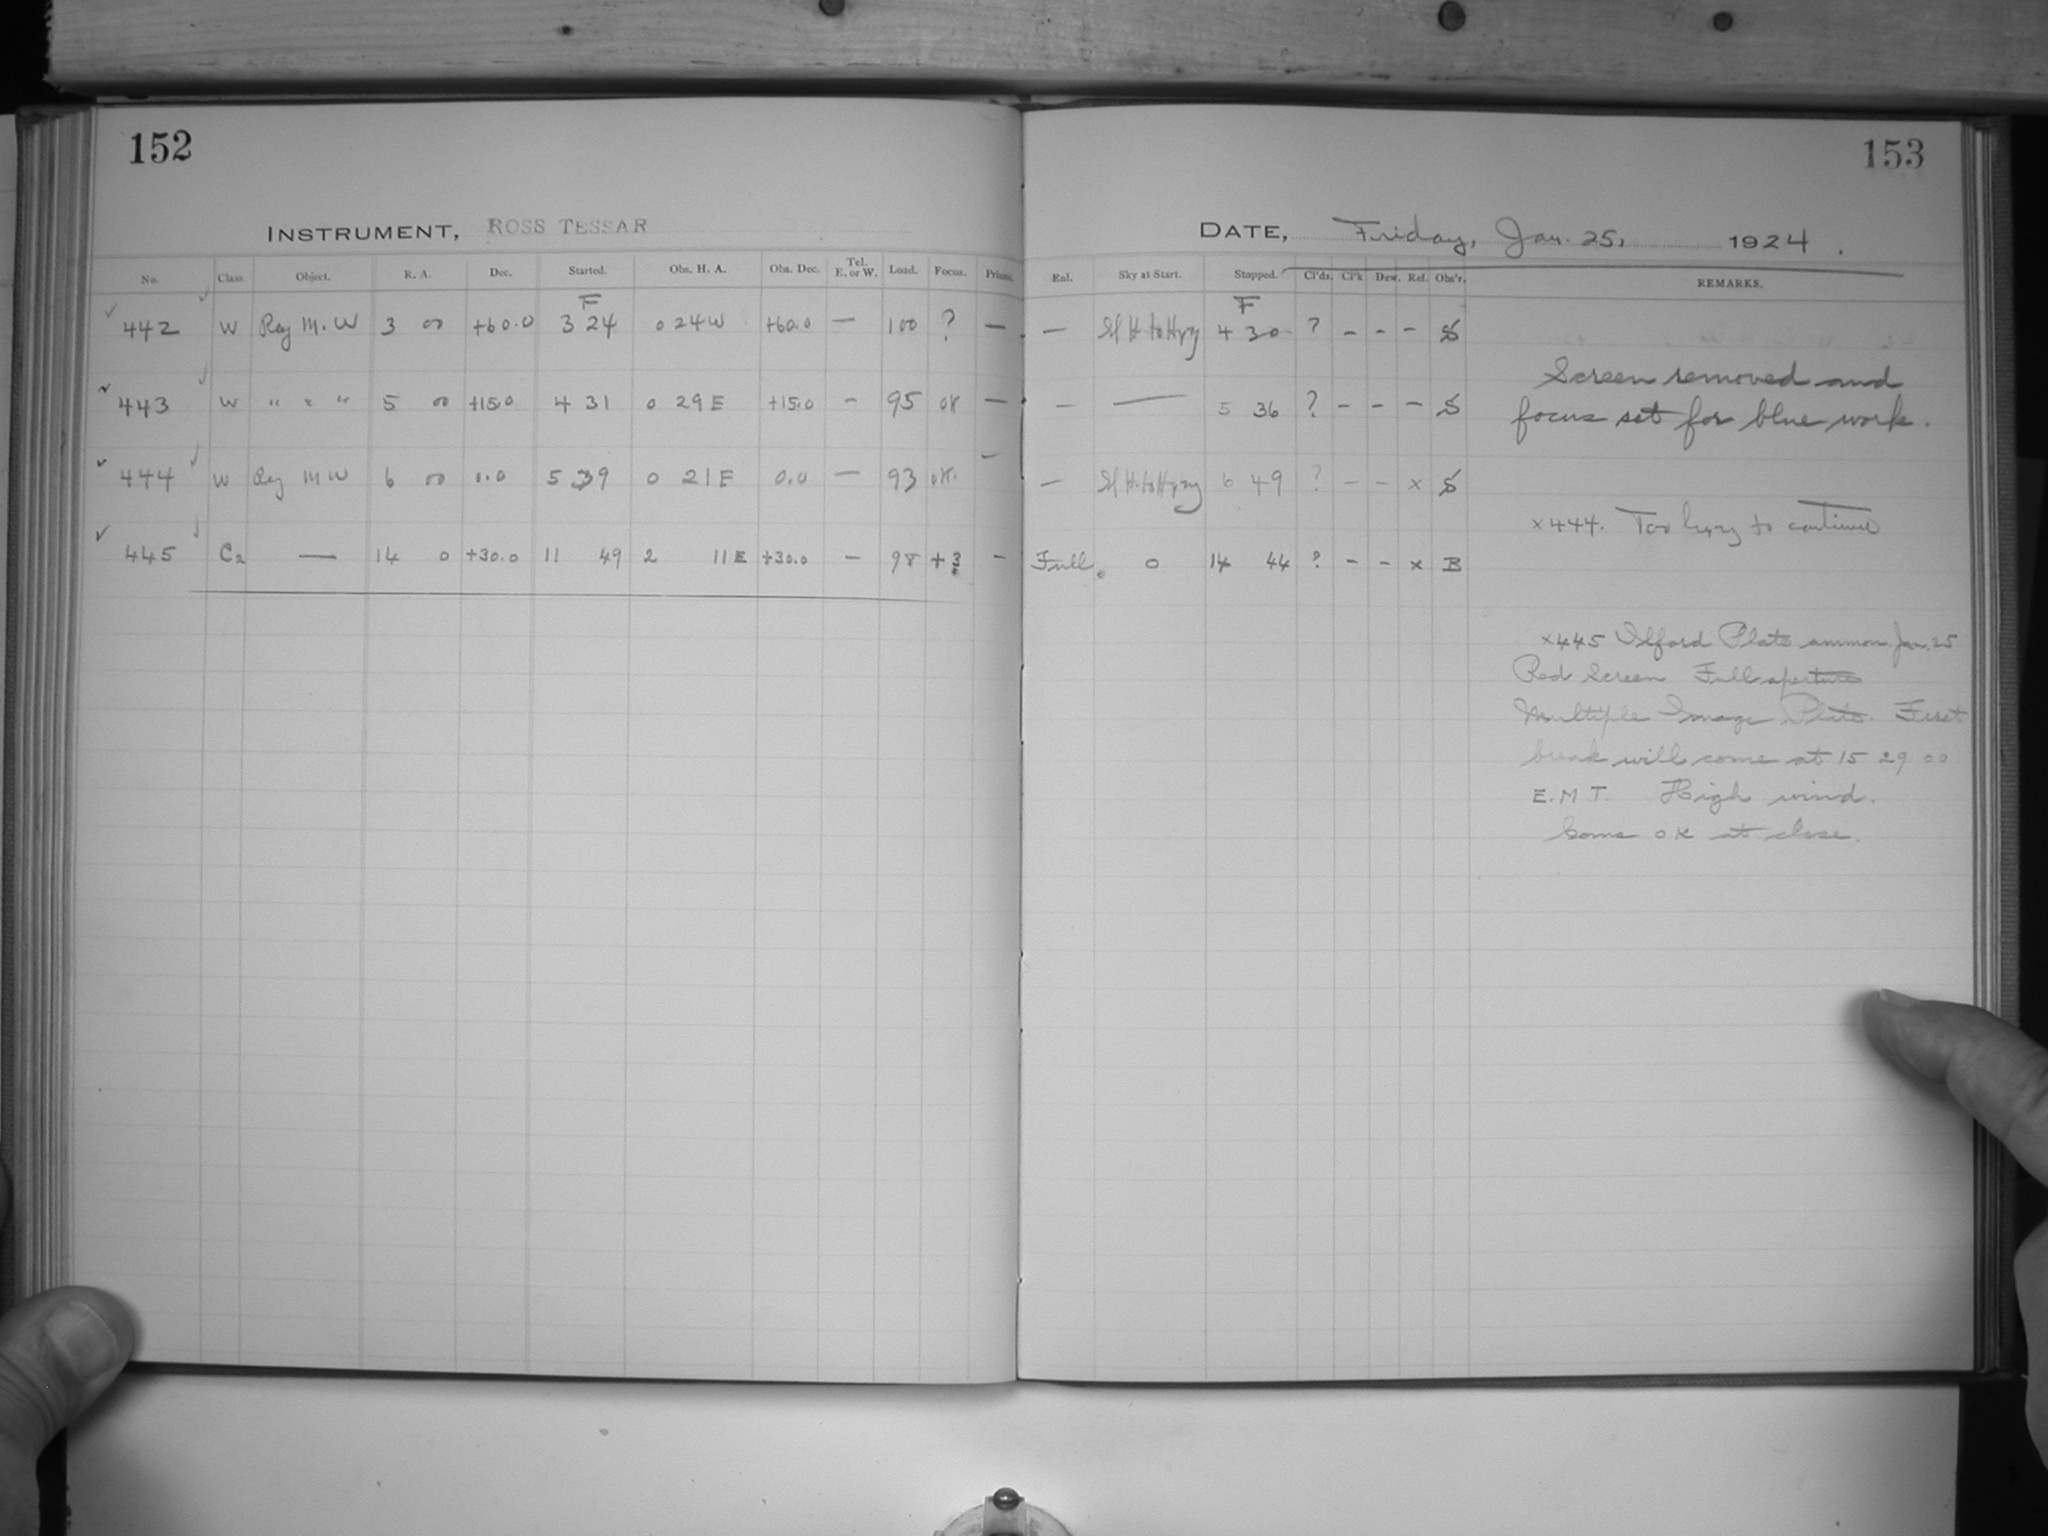 152
153
INSTRUMENT, ROSS TESSAR
DATE, Friday, Jan. 25, 1924.
No. Class. Object. R. A. Dec. Started. Obs. H. A. Obs. Dec. Tel. E. or W. Load. Focus. Prisms. Enl. Sky at Start. Stopped. Cl'ds. Cl'k Dew. Ref. Obs'r. REMARKS.
F F
442 W Reg M. W 3 00 +60.0 3 24 0 24 W +60.0 — 100 ? — — Sl H to Hzy 4 30 ? – – – S
443 W " " " 5 00 +15.0 4 31 0 29 E +15.0 – 95 OK — — — 5 36 ? – – – S
444 W Reg M W 6 00 0.0 5 39 0 21 E 0.0 — 93 OK. – — Sl H. to Hzy 6 49 ? – – x S
445 Ca — 14 0 +30.0 11 49 2 11 E +30.0 – 98 +3 – Full. 0 14 44 ? – – x B
Screen removed and
focus set for blue work.
x444. Too hzy to continue
x445 Ilford Plate ammon Jan. 25
Red Screen Full aperture
Multiple Image Plate. First
break will come at 15 29 00
E.M.T. High wind.
Some OK at close.